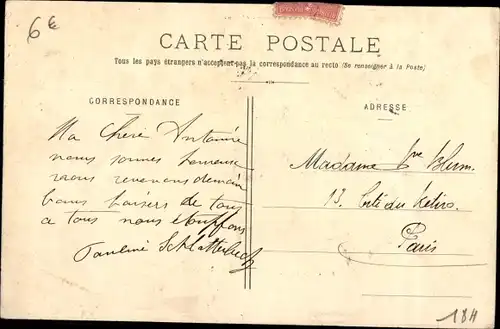 6€
CARTE POSTALE
Tous les pays étrangers n'acceptent pas la correspondance au recto (Se renseigner à la Poste)
CORRESPONDANCE
ADRESSE
Ma chère Antoinée
nous sommes heureuse
nous revenons demain
bons baisers de tous
a tous nous étouffons
Pauline
Madame Vve Blum
13. Cité du
Paris
184